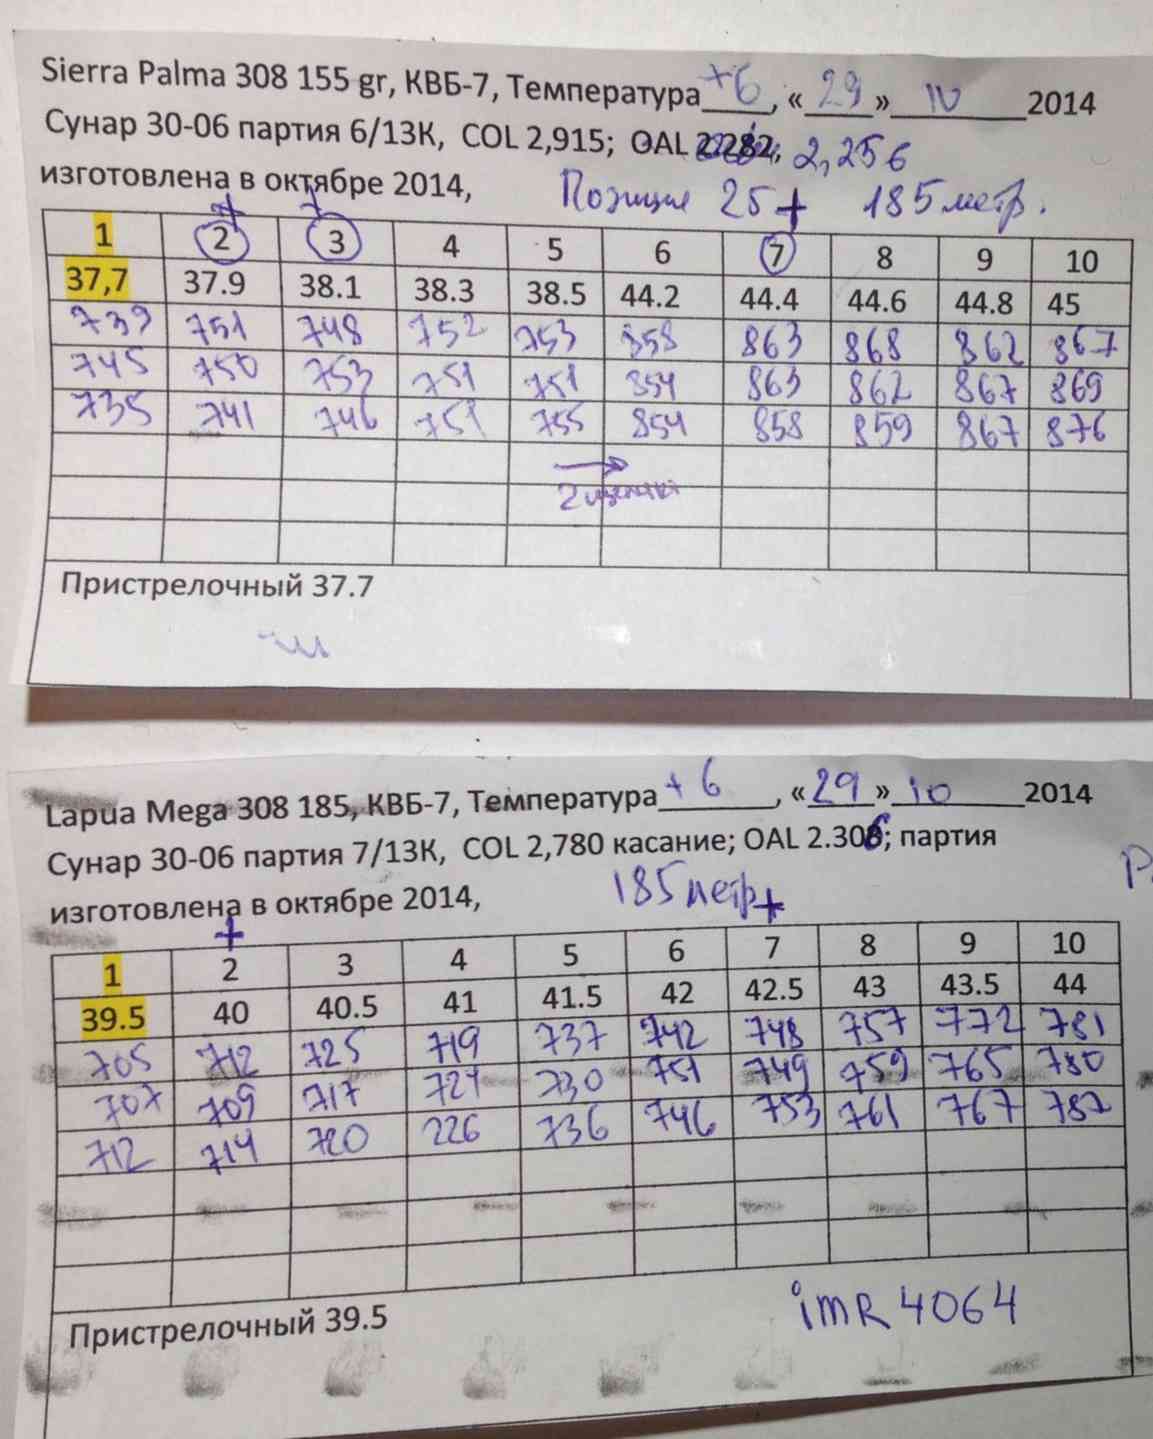 Sierra Palma 308 155 gr, КВБ-7, Температура +6, «29» 10 2014
Сунар 30-06 партия 6/13К, COL 2,915; OAL 2.282, 2,256
изготовлена в октябре 2014, Позиция 25 185 метр.
+ + +
1 2 3 4 5 6 7 8 9 10
37,7 37.9 38.1 38.3 38.5 44.2 44.4 44.6 44.8 45
739 751 748 752 753 858 863 868 862 867
745 750 753 751 751 854 863 862 867 869
735 741 746 751 755 854 858 859 867 876
→
2
Пристрелочный 37.7
Lapua Mega 308 185, КВБ-7, Температура +6, «29» 10 2014
Сунар 30-06 партия 7/13К, COL 2,780 касание; OAL 2.306; партия
изготовлена в октябре 2014, 185 метр
+ +
1 2 3 4 5 6 7 8 9 10
39.5 40 40.5 41 41.5 42 42.5 43 43.5 44
705 712 725 719 737 742 748 757 772 781
707 709 717 721 730 751 749 759 765 780
712 714 720 726 736 746 753 761 767 782
Пристрелочный 39.5
imR 4064